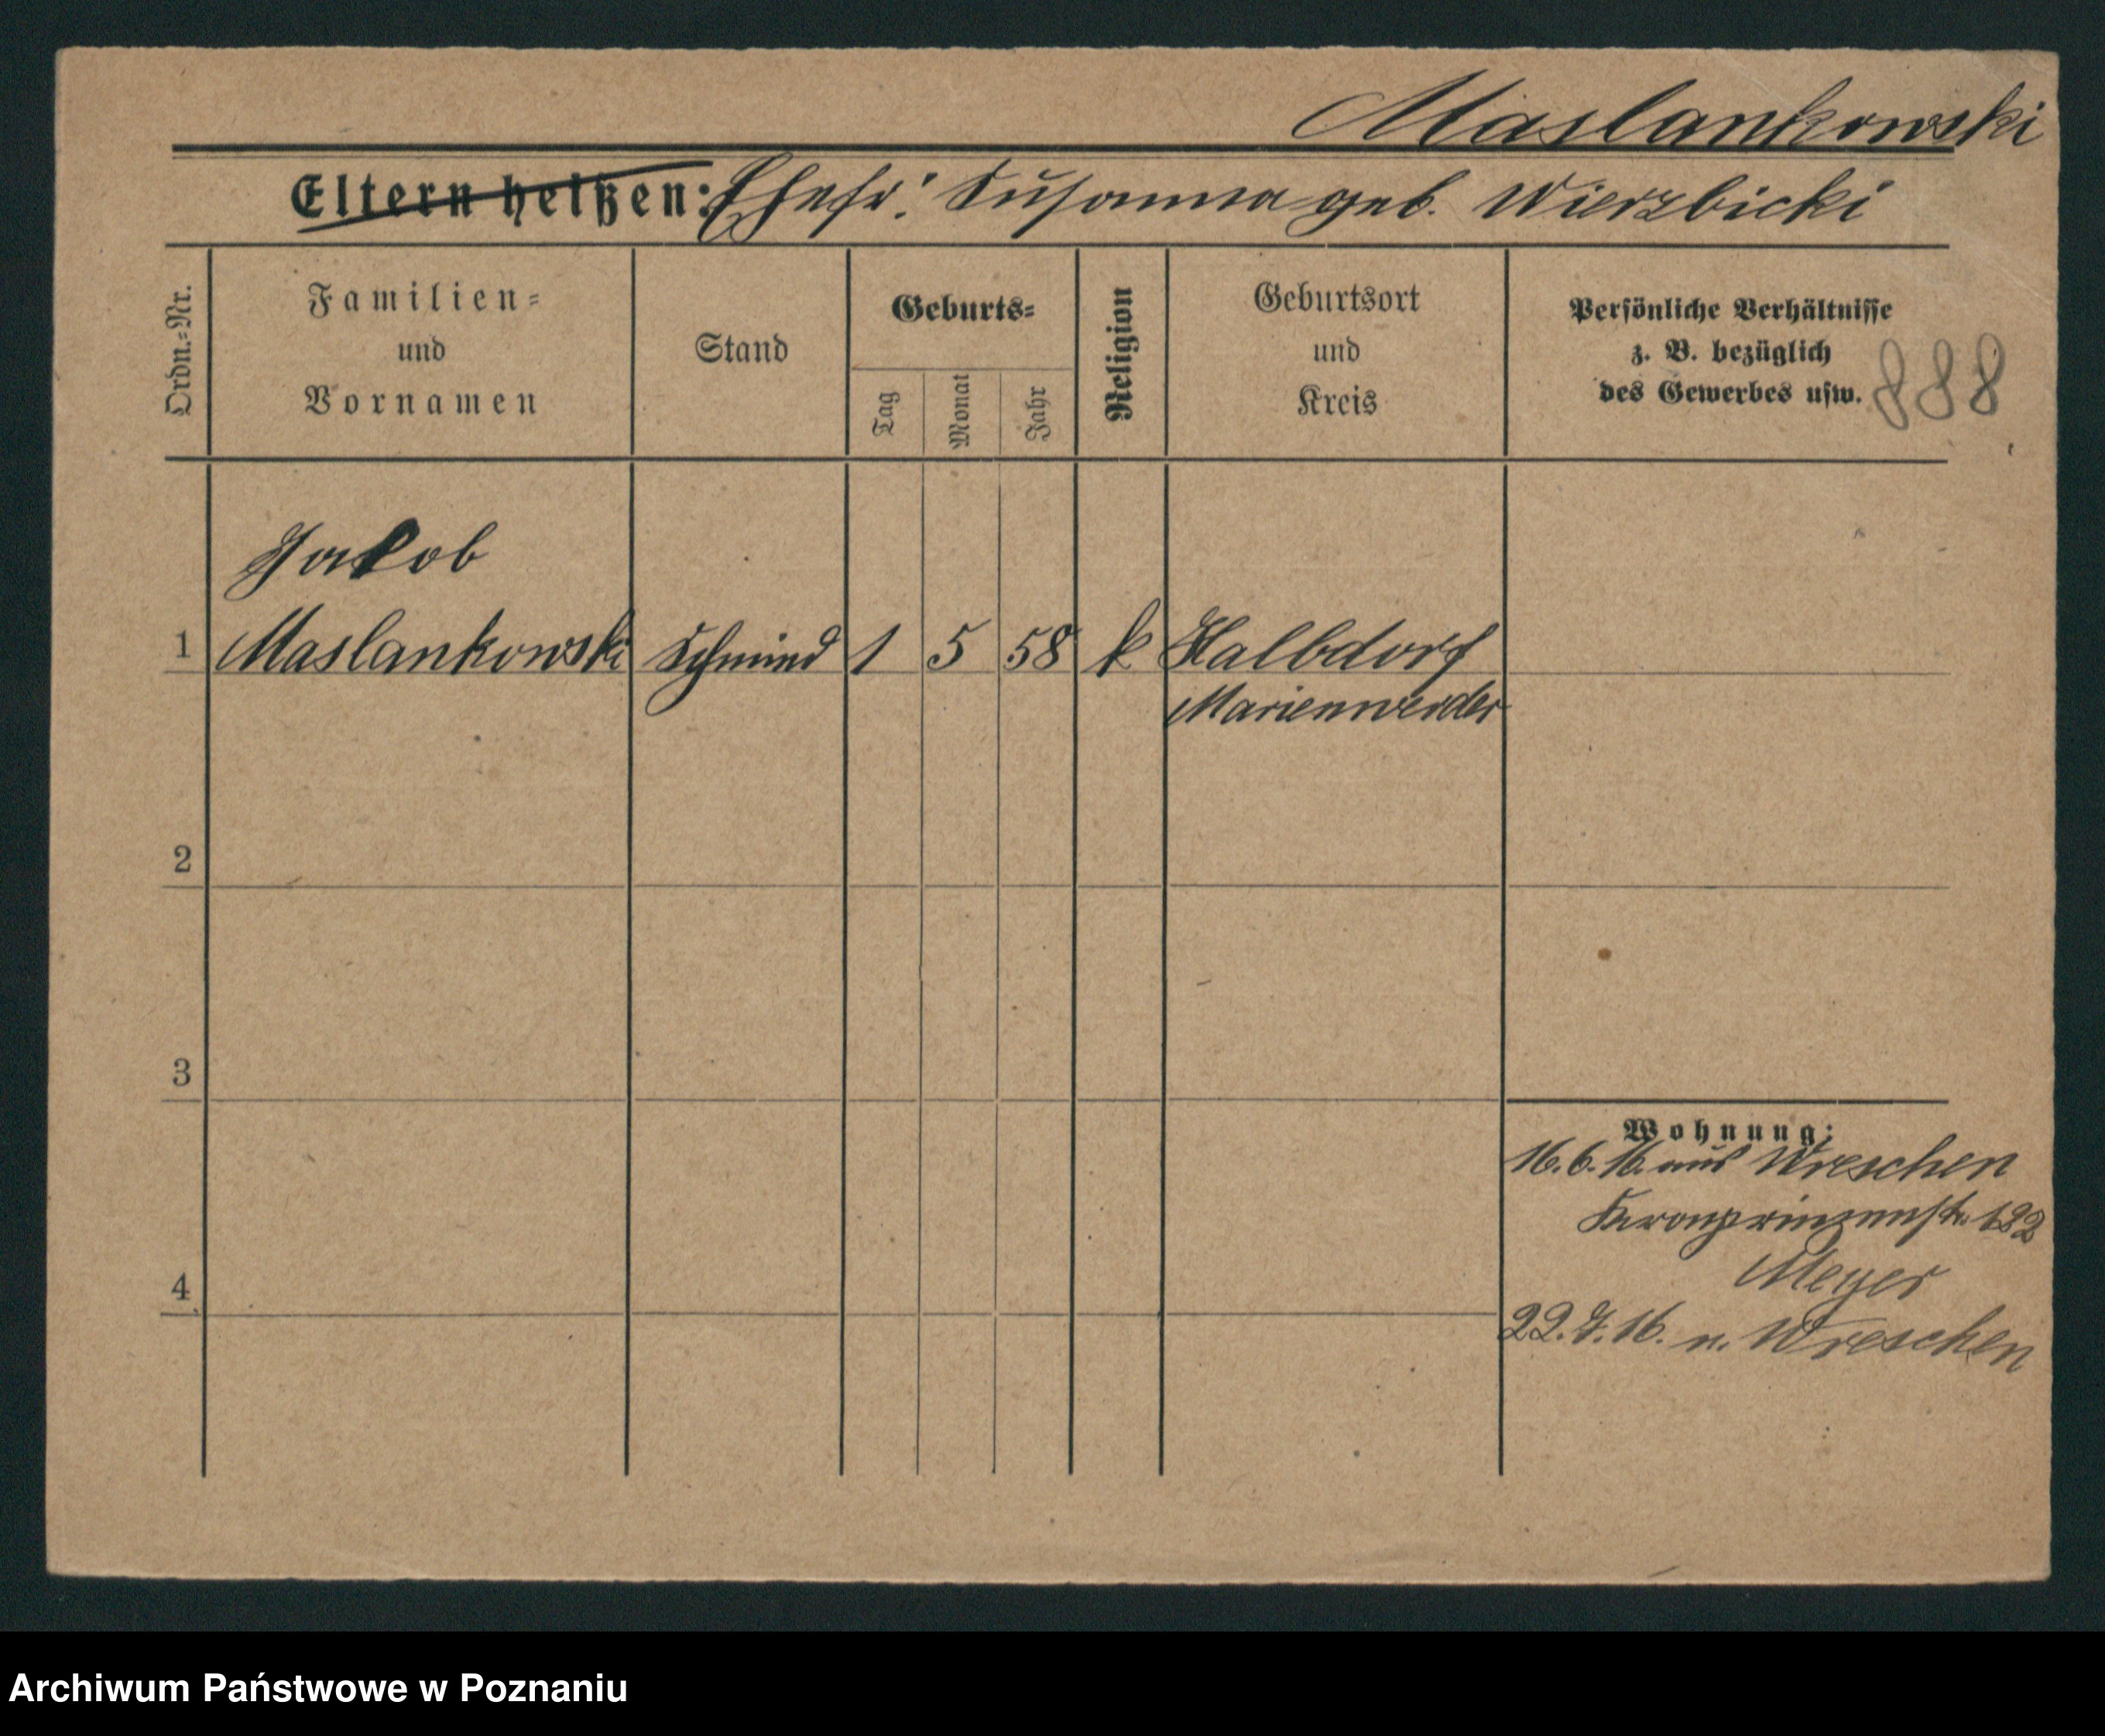 Maslankowski
Eltern heißen: Ehefr: Susanna geb. Wierzbicki
Ordn.=Nr.
Familien=
und
Vornamen
Stand
Geburts=
Tag
Monat
Jahr
Religion
Geburtsort
und
Kreis
Persönliche Verhältnisse
z. B. bezüglich
des Gewerbes usw.
888
Jakob
1 Maslankowski Schmied 1 5 58 k Halbdorf
Marienwerder
2
3
4
Wohnung:
16.6.16. aus Wreschen
Kronprinzenstr. 182
Meyer
22.7.16. n. Wreschen
Archiwum Państwowe w Poznaniu